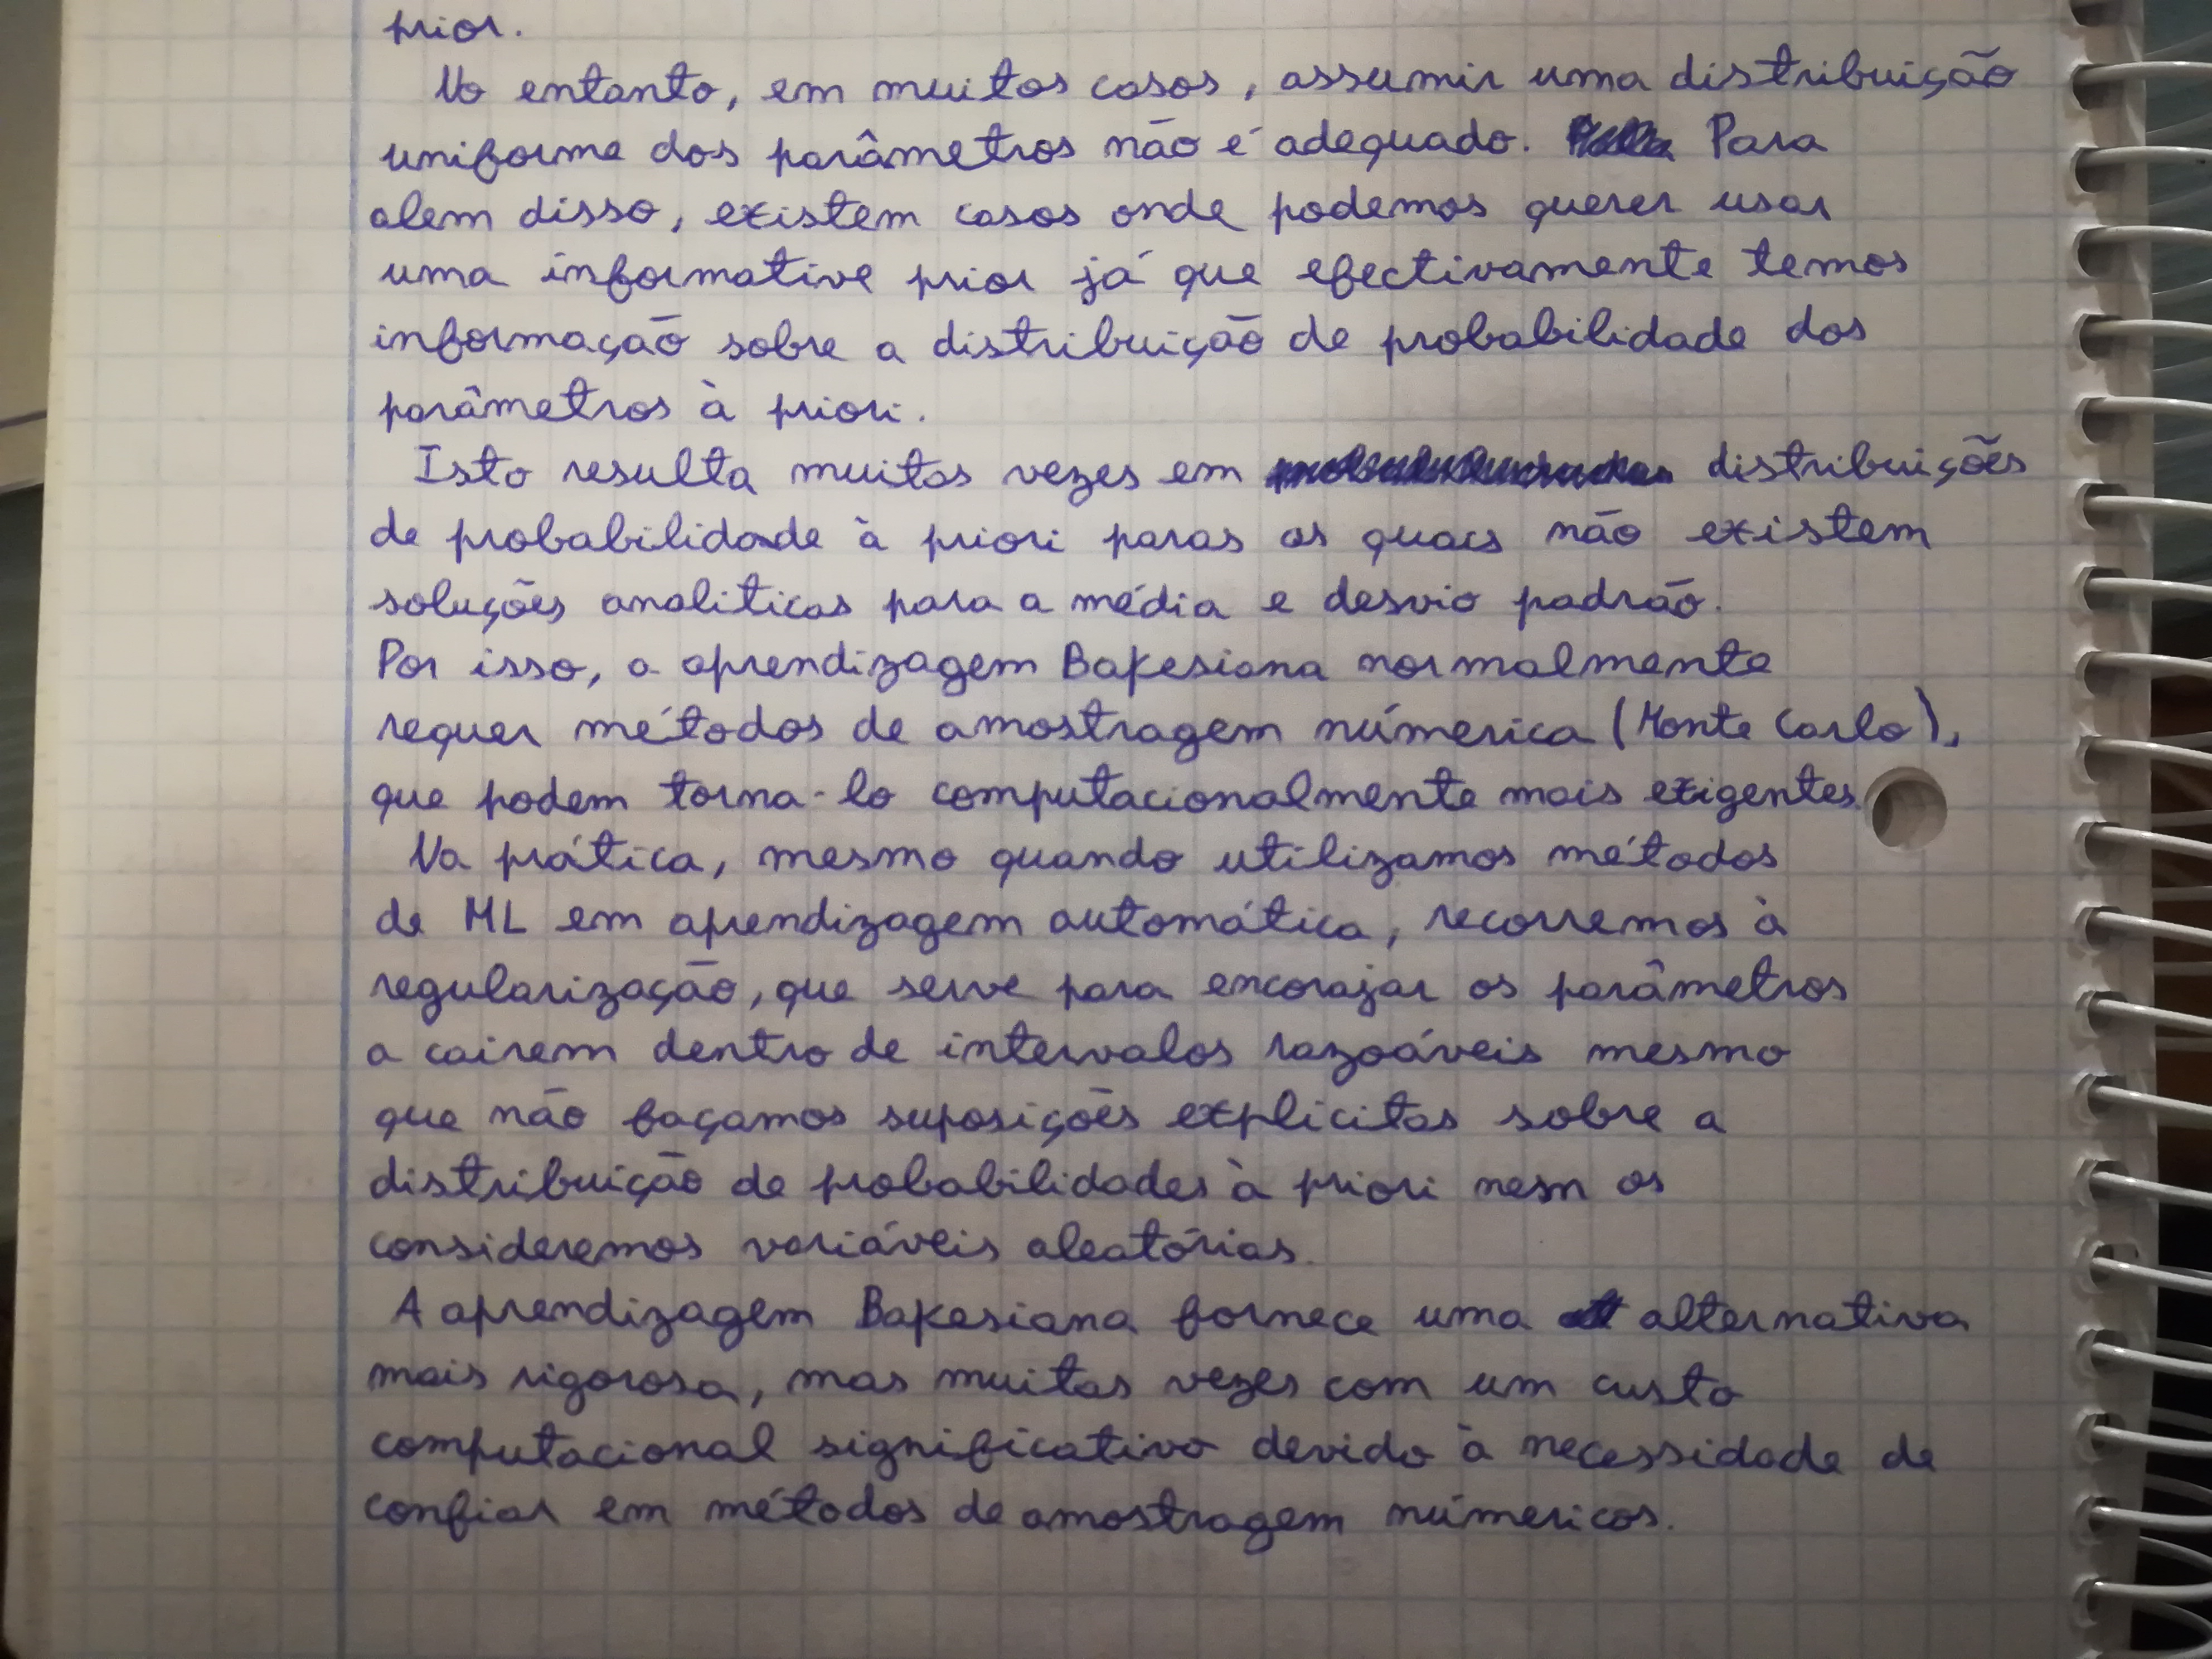 prior.
No entanto, em muitos casos, assumir uma distribuição
uniforme dos parâmetros não é adequado. Para
alem disso, existem casos onde podemos querer usar
uma informative prior já que efectivamente temos
informação sobre a distribuição de probabilidade dos
parâmetros à priori.
Isto resulta muitas vezes em distribuições
de probabilidade à priori paras as quais não existem
soluções analiticas para a média e desvio padrão.
Por isso, a aprendizagem Bayesiana normalmente
requer métodos de amostragem númerica (Monte Carlo),
que podem torna-lo computacionalmente mais exigentes
Na prática, mesmo quando utilizamos métodos
de ML em aprendizagem automática, recorremos à
regularização, que serve para encorajar os parâmetros
a cairem dentro de intervalos razoáveis mesmo
que não façamos suposições explicitas sobre a
distribuição de probabilidades à priori nem os
consideremos variáveis aleatórias.
A aprendizagem Bayesiana fornece uma alternativa
mais rigorosa, mas muitas vezes com um custo
computacional significativo devido à necessidade de
confiar em métodos de amostragem númericos.